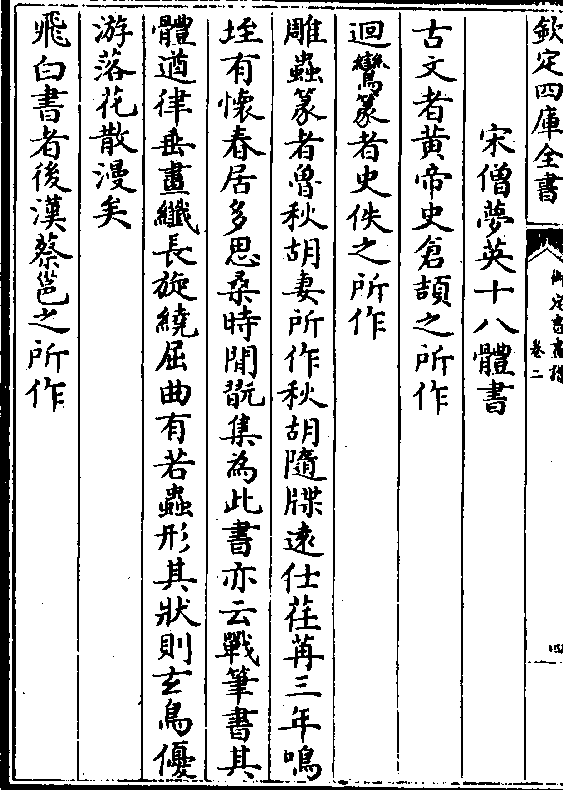 欽定四庫全書
御定書畫譜
卷二
宋僧夢英十八體書
古文者黄帝史倉頡之所作
迴鸞篆者史佚之所作
雕蟲篆者魯秋胡妻所作秋胡隨牒逺仕荏苒三年鳴
垤有懐春居多思桑時閒翫集為此書亦云戰筆書其
體遒律垂畫纖長旋繞屈曲有若蟲形其狀則玄鳥優
游落花散漫矣
飛白書者後漢蔡邕之所作